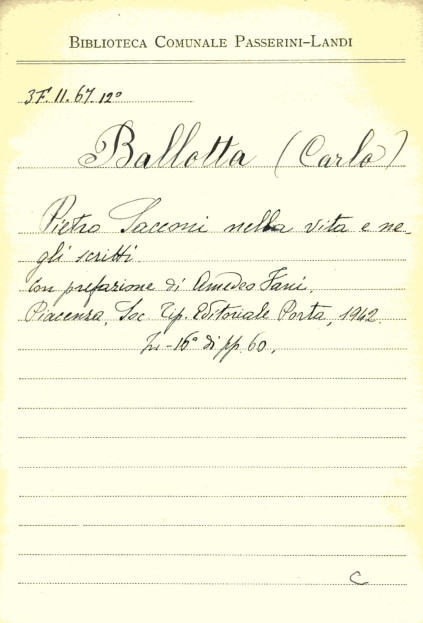 BIBLIOTECA COMUNALE PASSERINI-LANDI
3F.II.67.12º
Ballotta (Carlo)
Pietro Sacconi nella vita e ne-
gli scritti.
Con prefazione di Amedeo Fani.
Piacenza, Soc. Tip. Editoriale Porta, 1942.
In-16º di pp. 60.
C